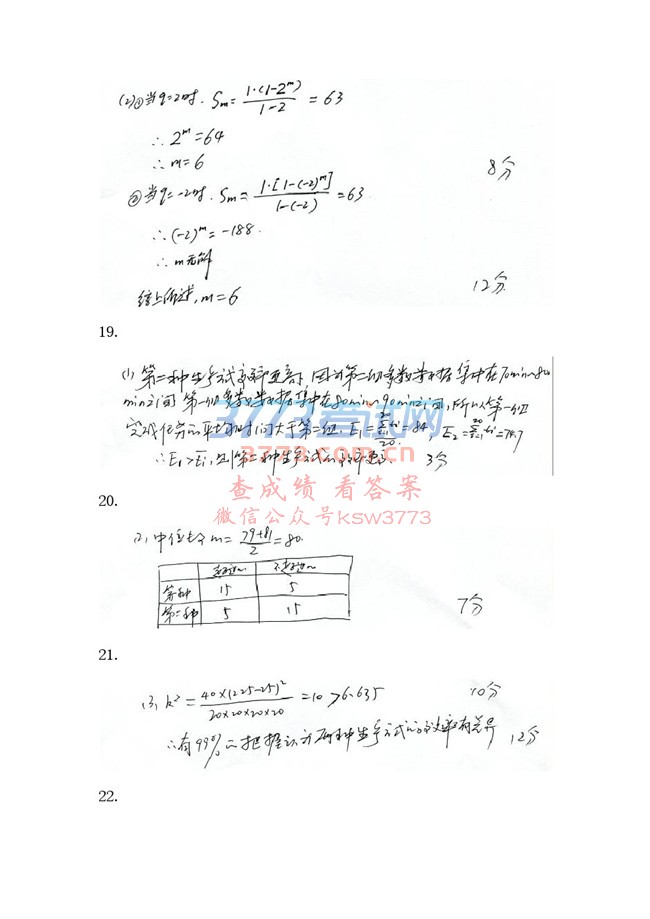 (2)①当q=2时. Sm= 1·(1-2^m) / 1-2 = 63
∴ 2^m = 64
∴ m=6 8分
②当q=-2时. Sm= 1·[1-(-2)^m] / 1-(-2) = 63
∴(-2)^m = -188.
∴ m无解
综上所述, m=6 12分
19.
(1) 第二种生产方式效率更高, 因为第二组多数数据集中在70min~80
min之间 第一组多数数据集中在80min~90min之间, 所以第一组
完成任务的平均时间大于第二组. = 84, = 74.7
3773考试网
3773.com.cn
∴E1>E2, 则第二种生产方式的效率更高 3分
查成绩 看答案
微信公众号ksw3773
20.
(2) 中位数 m= 79+81 / 2 =80.
超过m 不超过m
第一种 15 5
第二种 5 15
7分
21.
(3) k²= 40×(225-25)² / 20×20×20×20 =10>6.635 10分
∴有99%的把握认为两种生产方式的效率有差异 12分
22.